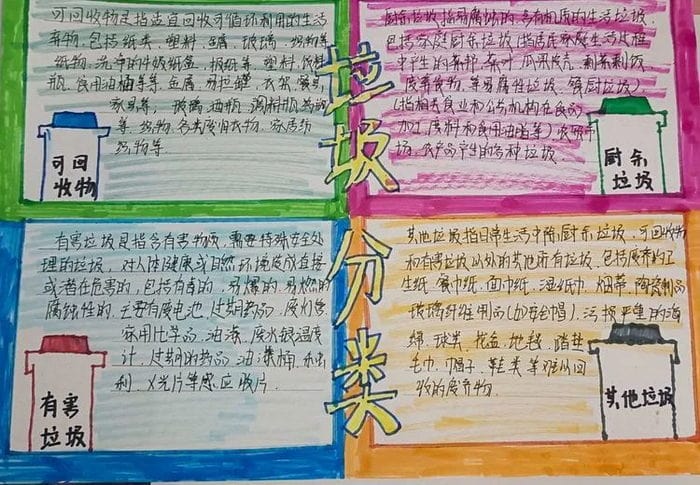 可回收物是指适宜回收可循环利用的生活
弃物,包括纸类、塑料、金属、玻璃、织物等
纸物、洗净的牛奶纸盒、报纸等、塑料、饮料
瓶、食用油桶等等、金属、易拉罐、衣架、餐具
家具等、玻璃、油瓶、调料瓶
等、织物、各类废旧衣物、家居纺
织物等
可回
收物
厨余垃圾指易腐烂的、含有机质的生活垃圾,
包括家庭厨余垃圾(指居民家庭生活过程
中产生的菜邦、菜叶、瓜果皮壳、剩菜剩饭、
废弃食物、等易腐性垃圾、餐厨垃圾)
(指相关食业和公共机构在食品
加工废料和食用油脂等)农贸市
场、农产品产生的各种垃圾.
厨余
垃圾
垃圾分类
有害垃圾是指含有害物质,需要特殊安全处
理的垃圾,对人体健康或自然环境造成直接
或潜在危害的,包括有毒的、易爆的、易燃的
腐蚀性的.主要有废电池、过期药品、废灯管
家用化学品、油漆、废水银温度
计、过期的药品、油漆桶、杀虫
剂、X光片等感应收片.
有害
垃圾
其他垃圾指日常生活中除厨余垃圾、可回收物
和有害垃圾以外的其他所有垃圾,包括废弃的卫
生纸、餐巾纸、面巾纸、湿纸巾、烟蒂、陶瓷制品
玻璃纤维用品(如安全帽)、污损严重的
绵、球类、枕盒、地毯、踏垫
毛巾、帽子、鞋类等难以回
收的废弃物.
其他垃圾